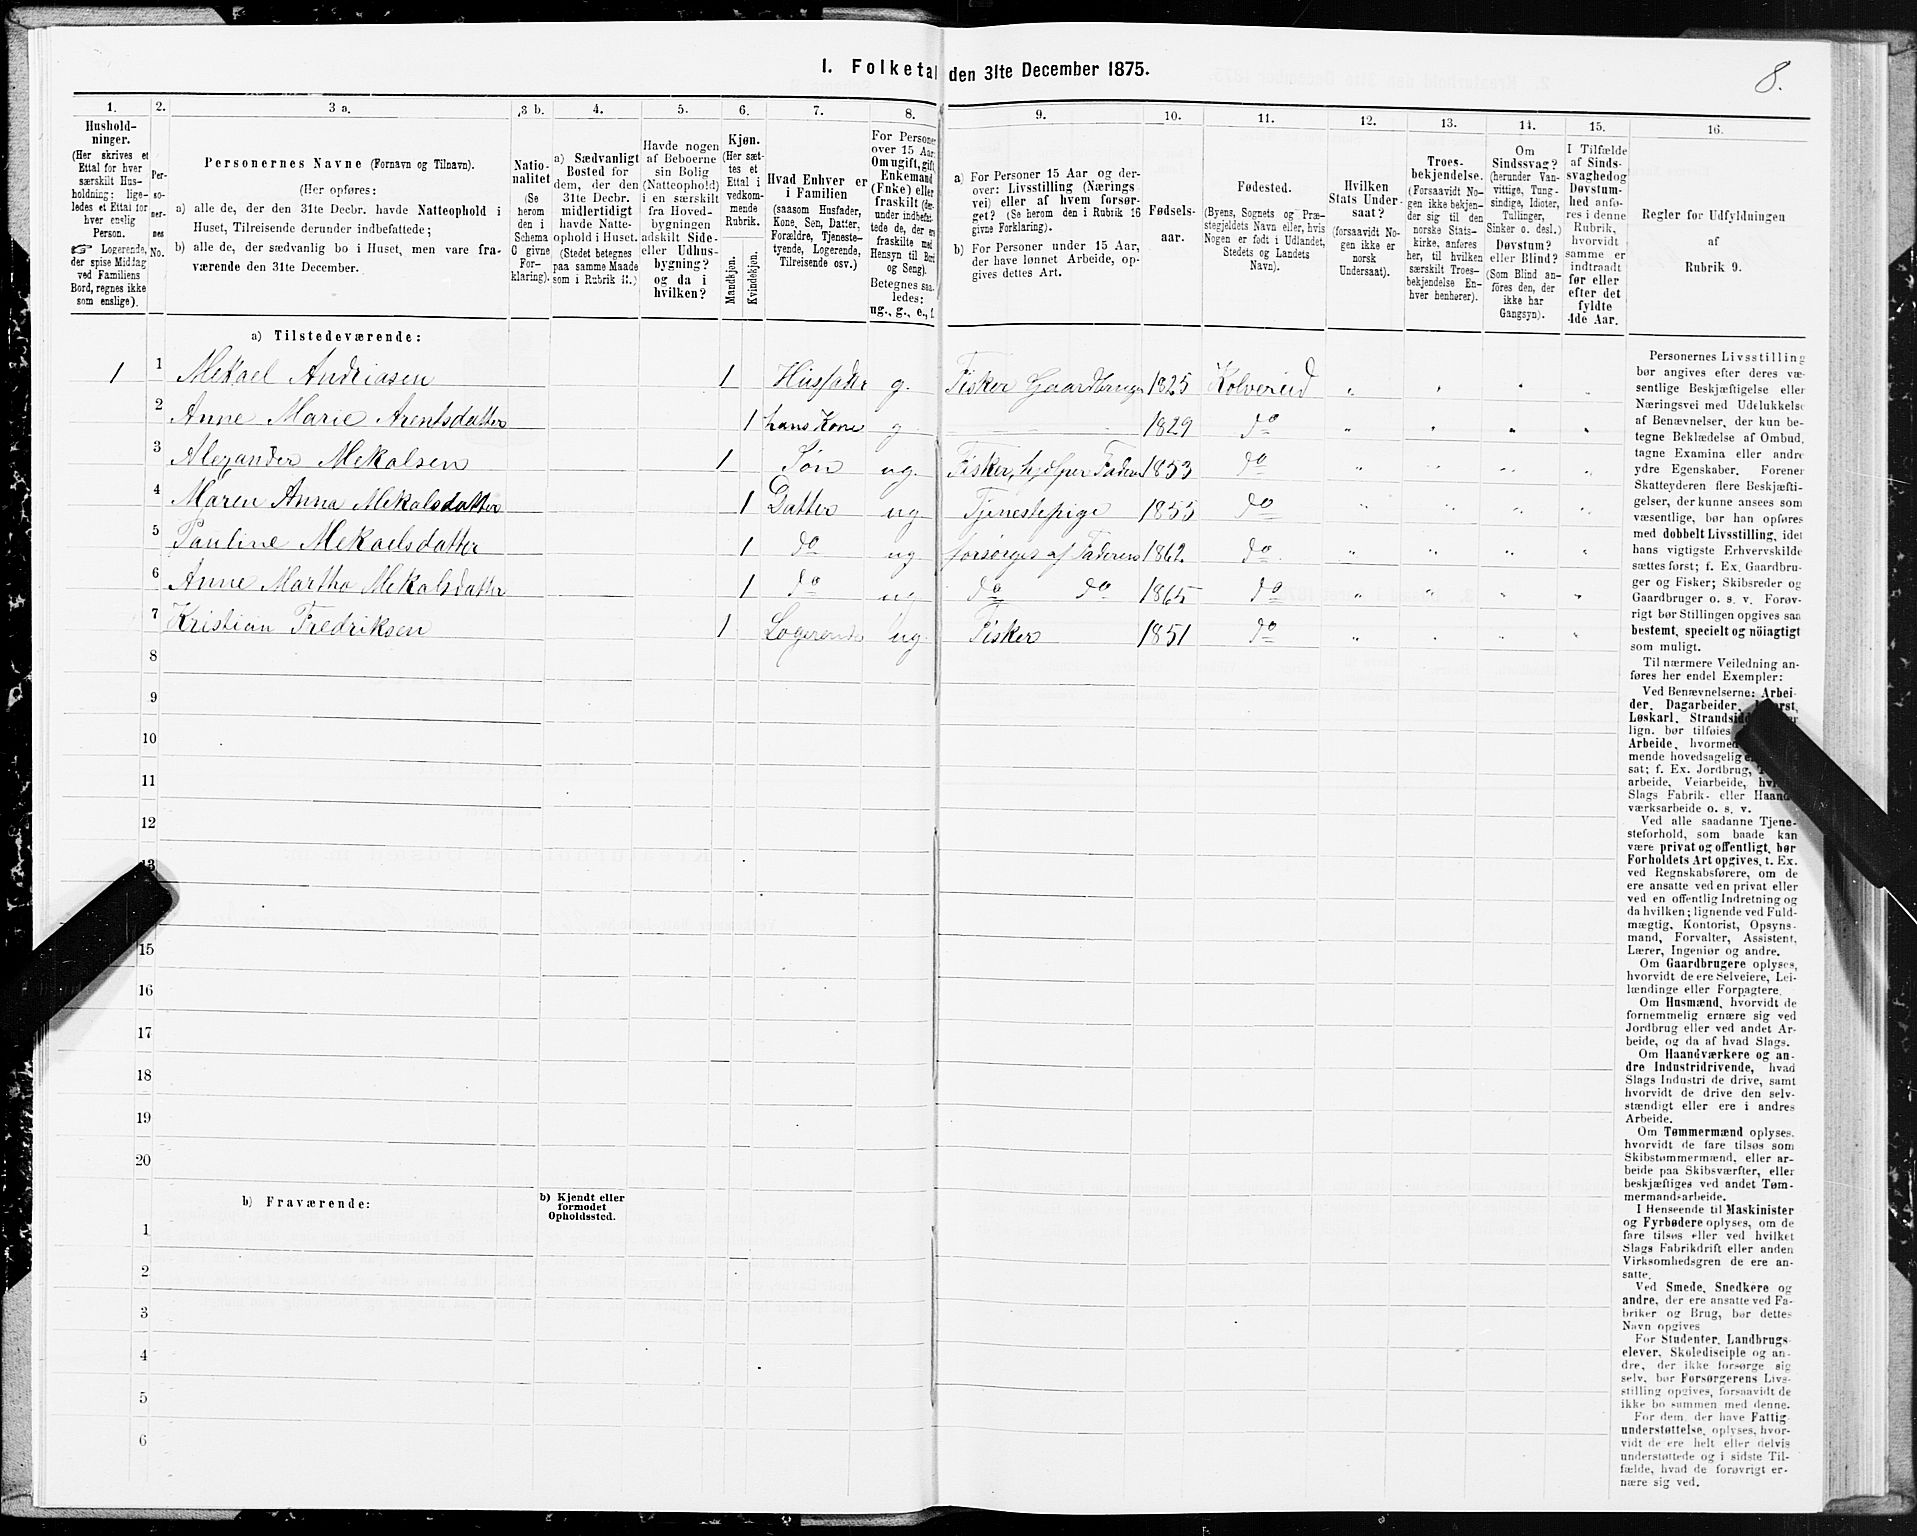 I. Folketal den 31te December 1875.
8.
1.
Hushold-
ninger.
(Her skrives et
Ettal for hver
særskilt Hus-
holdning; lige-
ledes et Ettal for
hver enslig
Person.
☞ Logerende,
der spise Middag
ved Familiens
Bord, regnes ikke
som enslige).
2.
Per-
so-
ner-
nes
No.
3 a.
Personernes Navne (Fornavn og Tilnavn).
(Her opføres:
a) alle de, der den 31te Decbr. havde Natteophold i
Huset, Tilreisende derunder indbefattede;
b) alle de, der sædvanlig bo i Huset, men vare fra-
værende den 31te December.
3 b.
Natio-
nalitet
(Se
herom
den i
Schema
O givne
For-
klaring).
4.
a) Sædvanligt
Bosted for
dem, der den
31te Decbr.
midlertidigt
havde Natte-
ophold i Huset.
(Stedet betegnes
paa samme Maade
som i Rubrik 11.)
5.
Havde nogen
af Beboerne
sin Bolig
(Natteophold)
i en særskilt
fra Hoved-
bygningen
adskilt Side-
eller Udhus-
bygning?
og da i
hvilken?
6.
Kjøn.
(Her sæt-
tes et
Ettal i
vedkom-
mende
Rubrik.
Mandkjøn.
Kvindekjøn.
7.
Hvad Enhver er
i Familien
(saasom Husfader,
Kone, Søn, Datter,
Forældre, Tjeneste-
tyende, Logerende,
Tilreisende osv.)
8.
For Personer
over 15 Aar:
Om ugift, gift,
Enkemand
(Enke) eller
fraskilt (der-
under indbefat-
tede de, der ere
fraskilte med
Hensyn til Bord
og Seng).
Betegnes saa-
ledes:
ug., g., e., f.
9.
a) For Personer 15 Aar og der-
over: Livsstilling (Nærings
vei) eller af hvem forsør-
get? (Se herom den i Rubrik 16
givne Forklaring).
b) For Personer under 15 Aar,
der have lønnet Arbeide, op-
gives dettes Art.
10.
Fødsels-
aar.
11.
Fødested.
(Byens, Sognets og Præ-
stegjeldets Navn eller, hvis
Nogen er født i Udlandet,
Stedets og Landets
Navn).
12.
Hvilken
Stats Under-
saat?
(forsaavidt No-
gen ikke er
norsk
Undersaat).
13.
Troes-
bekjendelse.
(Forsaavidt No-
gen ikke bekjen-
der sig til den
norske Stats-
kirke, anføres
her, til hvilken
særskilt Troes-
bekjendelse En-
hver henhører).
14.
Om
Sindssvag?
(herunder Van-
vittige, Tung-
sindige, Idioter,
Tullinger,
Sinker o. desl.)
Døvstum?
eller Blind?
(Som Blind an-
føres den, der
ikke har
Gangsyn).
15.
I Tilfælde
af Sinds-
svaghed og
Døvstum-
hed anfø-
res i denne
Rubrik,
hvorvidt
samme er
indtraadt
før eller
efter det
fyldte
4de Aar.
16.
Regler for Udfyldningen
af
Rubrik 9.
a) Tilstedeværende:
1 1 Mekael Andriasen 1 Husfader g. Fisker Gaardbruger 1825 Kolvereid " " " "
2 Anne Marie Arentsdatter 1 hans Kone g 1829 do " " " "
3 Alexander Mekalsen 1 Søn ug. Fisker, hjelper Faderen 1853 do " " " "
4 Maren Anna Mekalsdatter 1 Datter ug Tjenestepige 1855 do " " " "
5 Pauline Mekaelsdatter 1 do ug forsørges af Faderen 1862 do " " " "
6 Anne Martha Mekalsdatter 1 do ug do do 1865 do " " " "
7 Kristian Fredriksen 1 Logerende ug. Fisker 1851 do " " " "
8
9
10
11
12
13
15
16
17
18
19
20
b) Fraværende:
b) Kjendt eller
formodet
Opholdssted.
1
2
3
4
5
6
Personernes Livsstilling
bør angives efter deres væ-
sentlige Beskjæftigelse eller
Næringsvei med Udelukkelse
af Benævnelser, der kun be-
tegne Beklædelse af Ombud,
tagne Examina eller andre
ydre Egenskaber. Forener
Skatteyderen flere Beskjæfti-
gelser, der kunne ansees som
væsentlige, bør han opføres
med dobbelt Livsstilling, idet
hans vigtigste Erhvervskilde
sættes først; f. Ex. Gaardbru-
ger og Fisker; Skibsreder og
Gaardbruger o. s. v. Forøv-
rigt bør Stillingen opgives saa
bestemt, specielt og nöiagtigt
som muligt.
Til nærmere Veiledning an-
føres her endel Exempler:
Ved Benævnelserne: Arbei-
der, Dagarbeider,
Løskarl, Strandsid
lign. bør tilføies
Arbeide, hvormed
mende hovedsagelig
sat; f. Ex. Jordbrug,
arbeide, Veiarbeide,
Slags Fabrik- eller Haand-
værksarbeide o. s. v.
Ved alle saadanne Tjene-
steforhold, som baade kan
være privat og offentligt, bør
Forholdets Art opgives, t. Ex.
ved Regnskabsførere, om de
ere ansatte ved en privat eller
ved en offentlig Indretning og
da hvilken; lignende ved Fuld-
mægtig, Kontorist, Opsyns-
mand, Forvalter, Assistent,
Lærer, Ingeniør og andre.
Om Gaardbrugere oplyses,
hvorvidt de ere Selveiere, Lei-
lændinge eller Forpagtere.
Om Husmænd, hvorvidt de
fornemmelig ernære sig ved
Jordbrug eller ved andet Ar-
beide, og da af hvad Slags.
Om Haandværkere og an-
dre Industridrivende, hvad
Slags Industri de drive, samt
hvorvidt de drive den selv-
stændigt eller ere i andres
Arbeide.
Om Tømmermænd oplyses,
hvorvidt de fare tilsøs som
Skibstømmermænd, eller ar-
beide paa Skibsværfter, eller
beskjæftiges ved andet Tøm-
mermandsarbeide.
I Henseende til Maskinister
og Fyrbødere oplyses, om de
fare tilsøs eller ved hvilket
Slags Fabrikdrift eller anden
Virksomhedsgren de ere an-
satte.
Ved Smede, Snedkere og
andre, der ere ansatte ved Fa-
briker og Brug, bør dettes
Navn opgives
For Studenter, Landbrugs-
elever, Skoledisciple og an-
dre, der ikke forsørge sig
selv, bør Forsørgerens Livs-
stilling opgives, forsaavidt de
ikke bo sammen med denne.
For dem, der have Fattig-
understøttelse, oplyses, hvor-
vidt de ere helt eller delvis
understøttede og i sidste Til-
fælde, hvad de forøvrigt er-
nære sig ved.